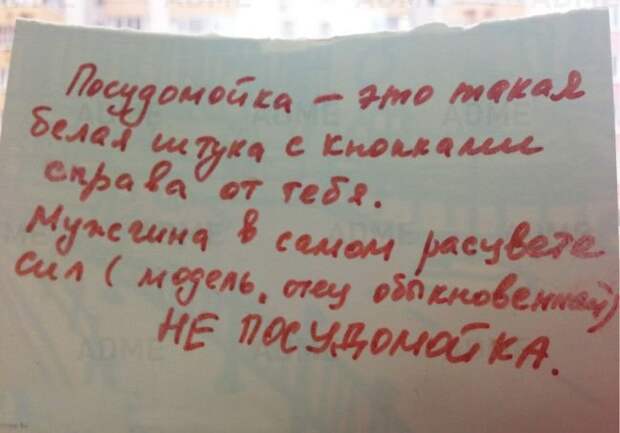 Посудомойка – это такая
белая штука с кнопками
справа от тебя.
Мужчина в самом расцвете
сил (модель „отец обыкновенный)
НЕ ПОСУДОМОЙКА.
ADME